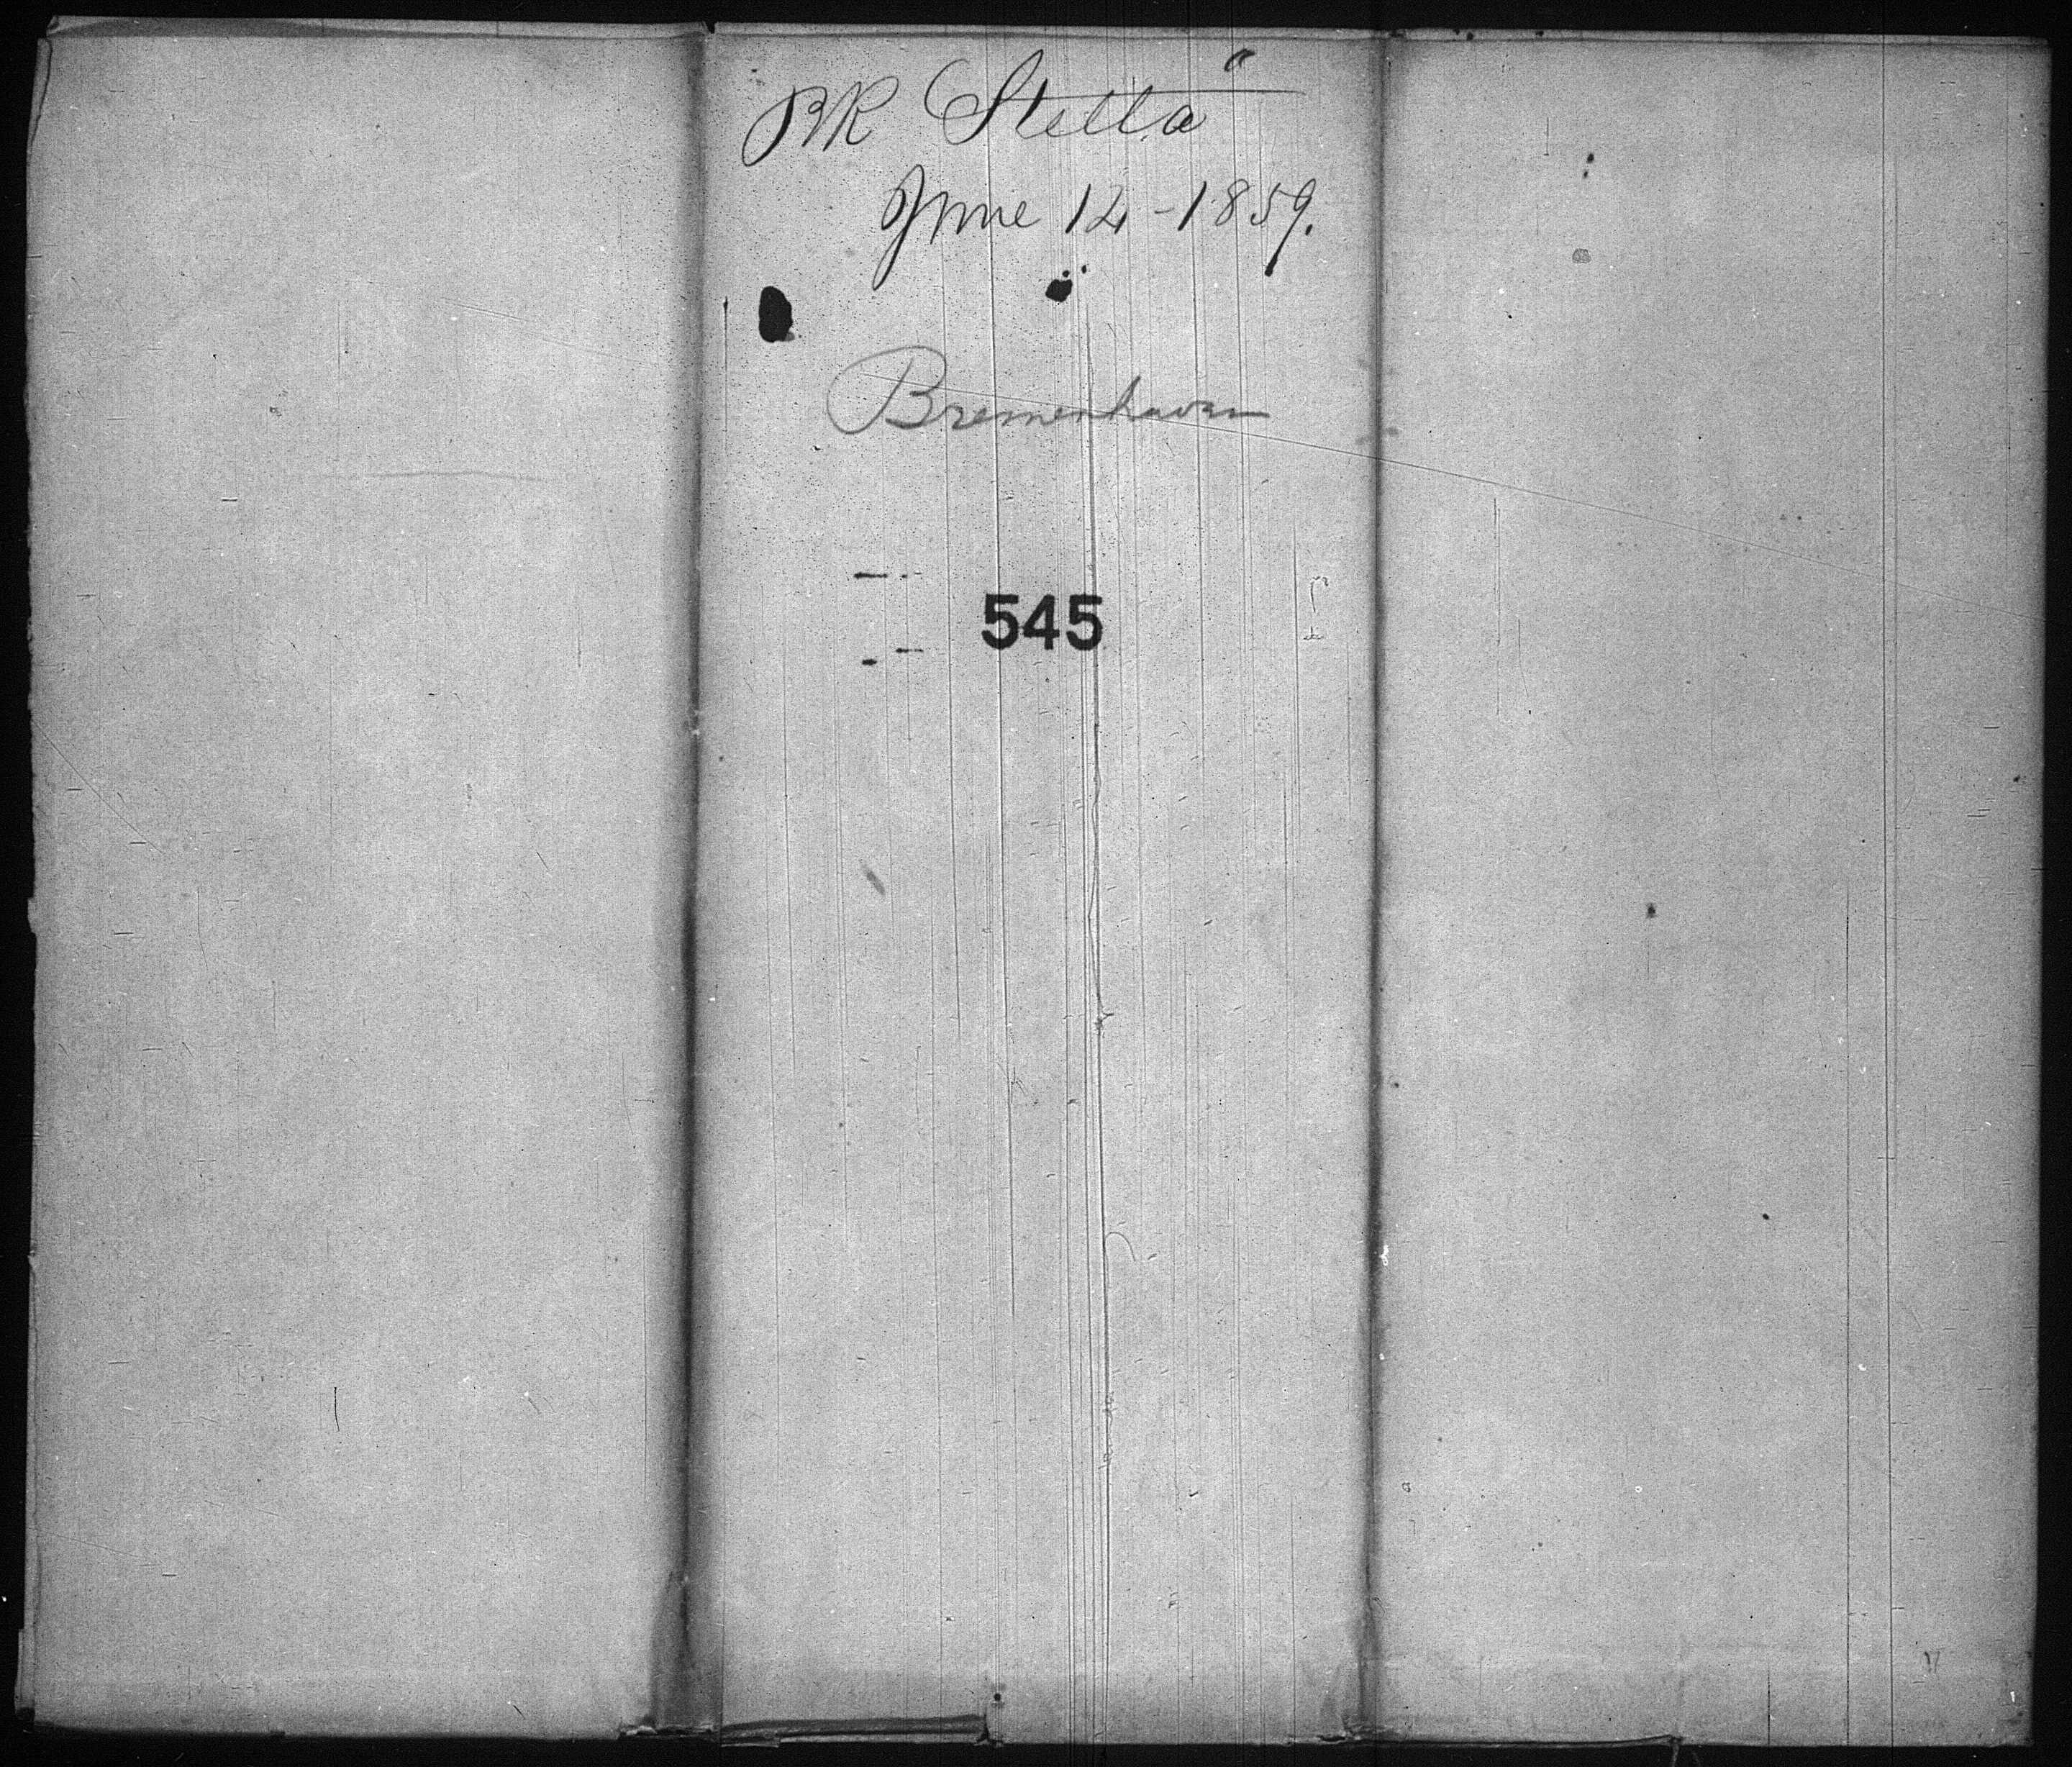 BK Stella
June 14-1859.
Bremenhaven
545